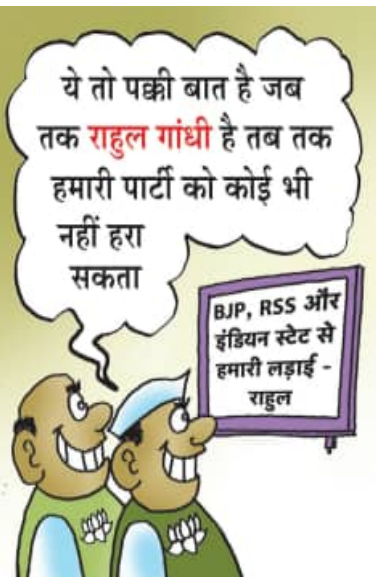 ये तो पक्की बात है जब
तक राहुल गांधी है तब तक
हमारी पार्टी को कोई भी
नहीं हरा
सकता
BJP, RSS और
इंडियन स्टेट से
हमारी लड़ाई -
राहुल